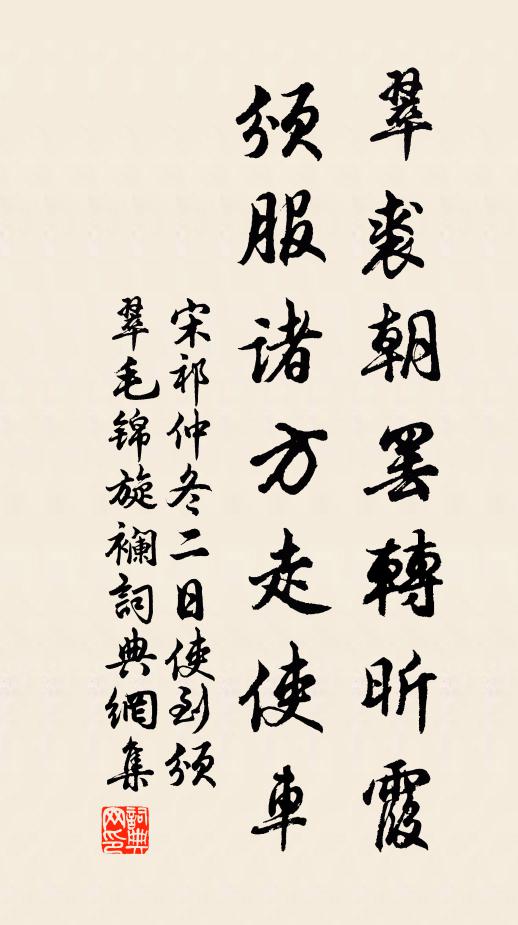 翠裘朝罢轉昕霞
頒服诸方走使車
宋祁仲冬二日使到頒
翠毛锦旋襴詞典網集
詞典网印